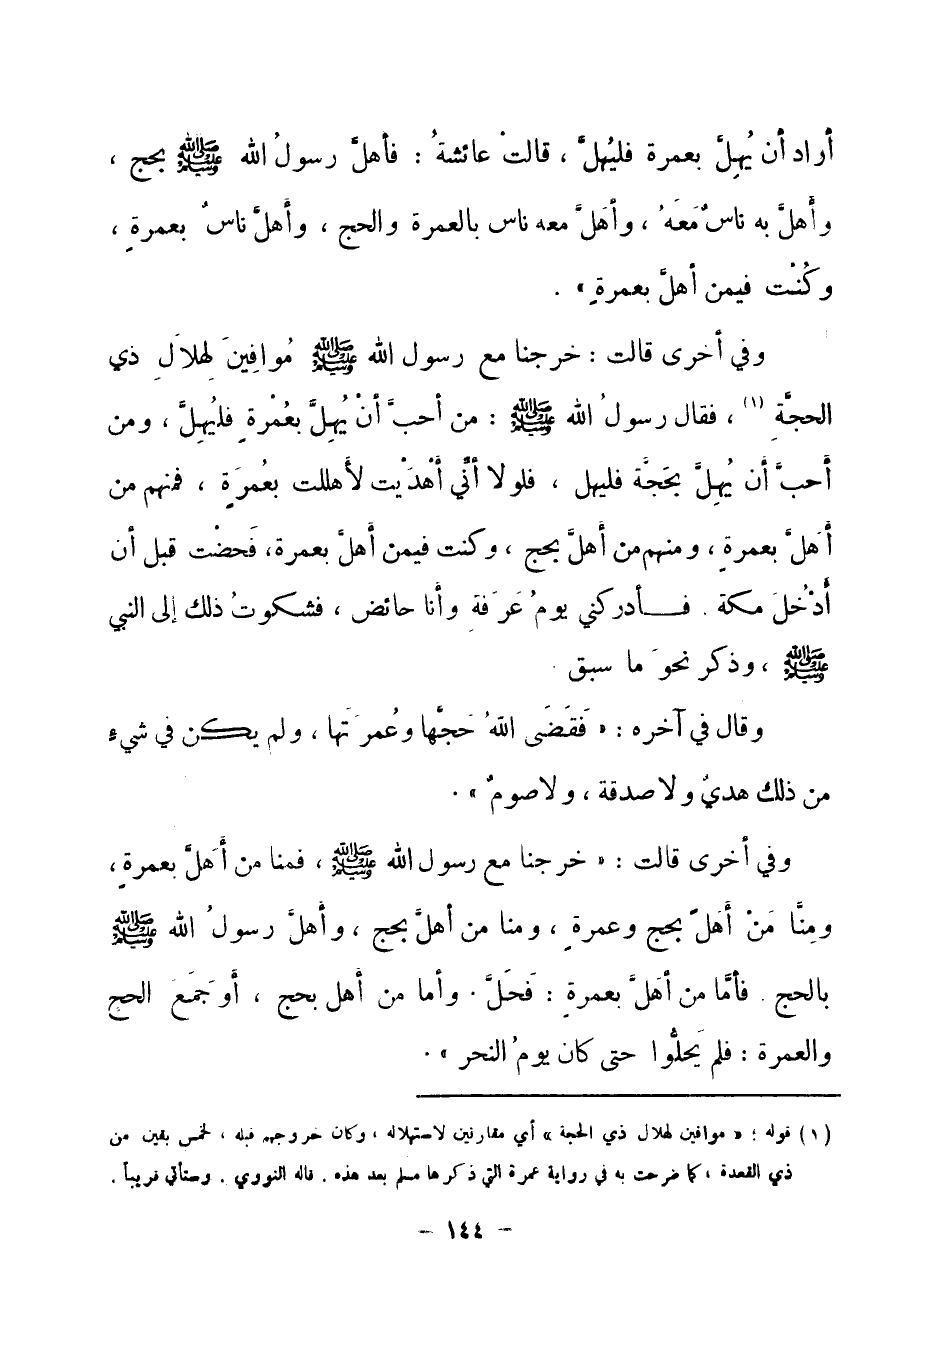 أراد أن يُهِلَّ بعمرة فليُهلَّ ، قالتْ عائشةُ : فأهلَّ رسولُ الله ﷺ بحج ،
وأهلَّ به ناسٌ مَعَهُ ، وأهَلَّ معه ناس بالعمرة والحج ، وأهلَّ ناسٌ بعمرةٍ ،
وكُنْت فيمن أهلَّ بعمرةٍ » .
وفي أخرى قالت : خرجنا مع رسول الله ﷺ مُوافِينَ لهلالِ ذي
الحجَّةِ (١) ، فقال رسولُ الله ﷺ : من أحبَّ أنْ يُهِلَّ بعُمْرةٍ فليُهِلَّ ، ومن
أحبَّ أن يُهِلَّ بحَجَّة فليهل ، فلولا أنِّي أهْدَيْت لأهللت بعُمرَةٍ ، فمنهم من
أهَلَّ بعمرةٍ ، ومنهم من أهلَّ بحج ، وكنت فيمن أهلَّ بعمرة، فَحضْت قبل أن
أدْخُلَ مكة . فـأدركني يومُ عَرَفةِ وأنا حائض ، فشكوتُ ذلك إلى النبي
ﷺ ، وذكر نحوَ ما سبق .
وقال في آخره : « فَقَضَى اللهُ حَجَّها وعُمرَتَها ، ولم يكن في شيءٍ
من ذلك هديٌ ولا صدقة ، ولا صومٌ » .
وفي أخرى قالت : « خرجنا مع رسول الله ﷺ ، فمنا من أهَلَّ بعمرةٍ ،
ومِنَّا مَنْ أهَلَّ بحج وعمرةٍ ، ومنا من أهلَّ بحج ، وأهلَّ رسولُ الله ﷺ
بالحج . فأمَّا من أهَلَّ بعمرةٍ : فَحَلَّ . وأما من أهل بحج ، أو جَمَعَ الحج
والعمرة : فلم يَحلُّوا حتى كان يومُ النحر » .
(١) قوله : « موافين لهلال ذي الحجة » أي مقارنين لاستهلاله ، وكان خروجهم قبله ، لخمس بقين من
ذي القعدة ، كما صرحت به في رواية عمرة التي ذكرها مسلم بعد هذه . قاله النووي . وستأتي قريباً .
– ١٤٤ –